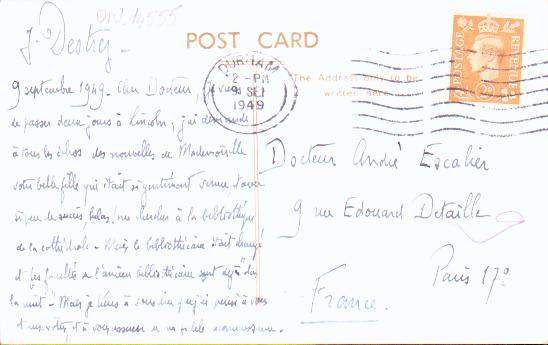 DIV. 14555
J. Destrez
POST CARD
DURHAM
2 - PM
9 SEP
1949
POSTAGE
REVENUE
2D
The Address only to be
written here
9 septembre 1949 - Cher Docteur, je viens
de passer deux jours à Lincoln ; j'ai demandé
à tous les échos des nouvelles de Mademoiselle
votre belle fille qui était si gentiment venue avec
si peu de succès hélas ! me chercher à la bibliothèque
de la cathédrale - Mais le bibliothécaire était changé
et les facultés de l'ancien bibliothécaire sont dans
la nuit - Mais je tiens à vous dire que j'ai pensé à vous
et à vous assurer de ma fidèle
Docteur André Escalier
9 rue Edouard Detaille
Paris 17e
France